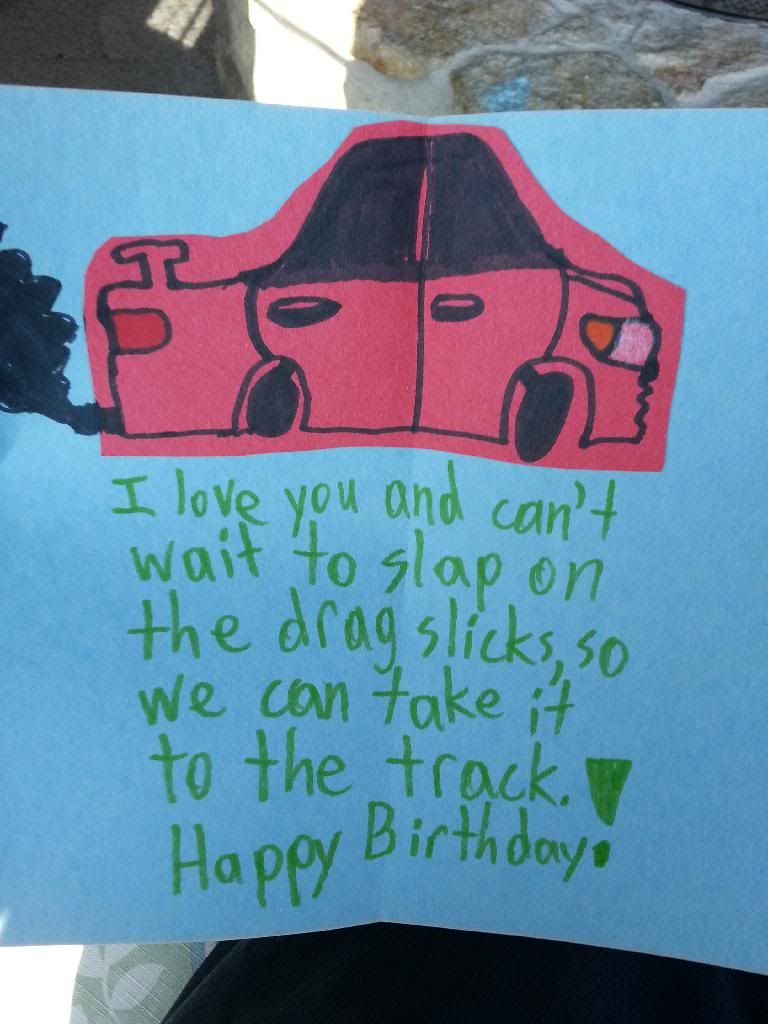 I love you and can't
wait to slap on
the drag slicks, so
we can take it
to the track.
Happy Birthday!